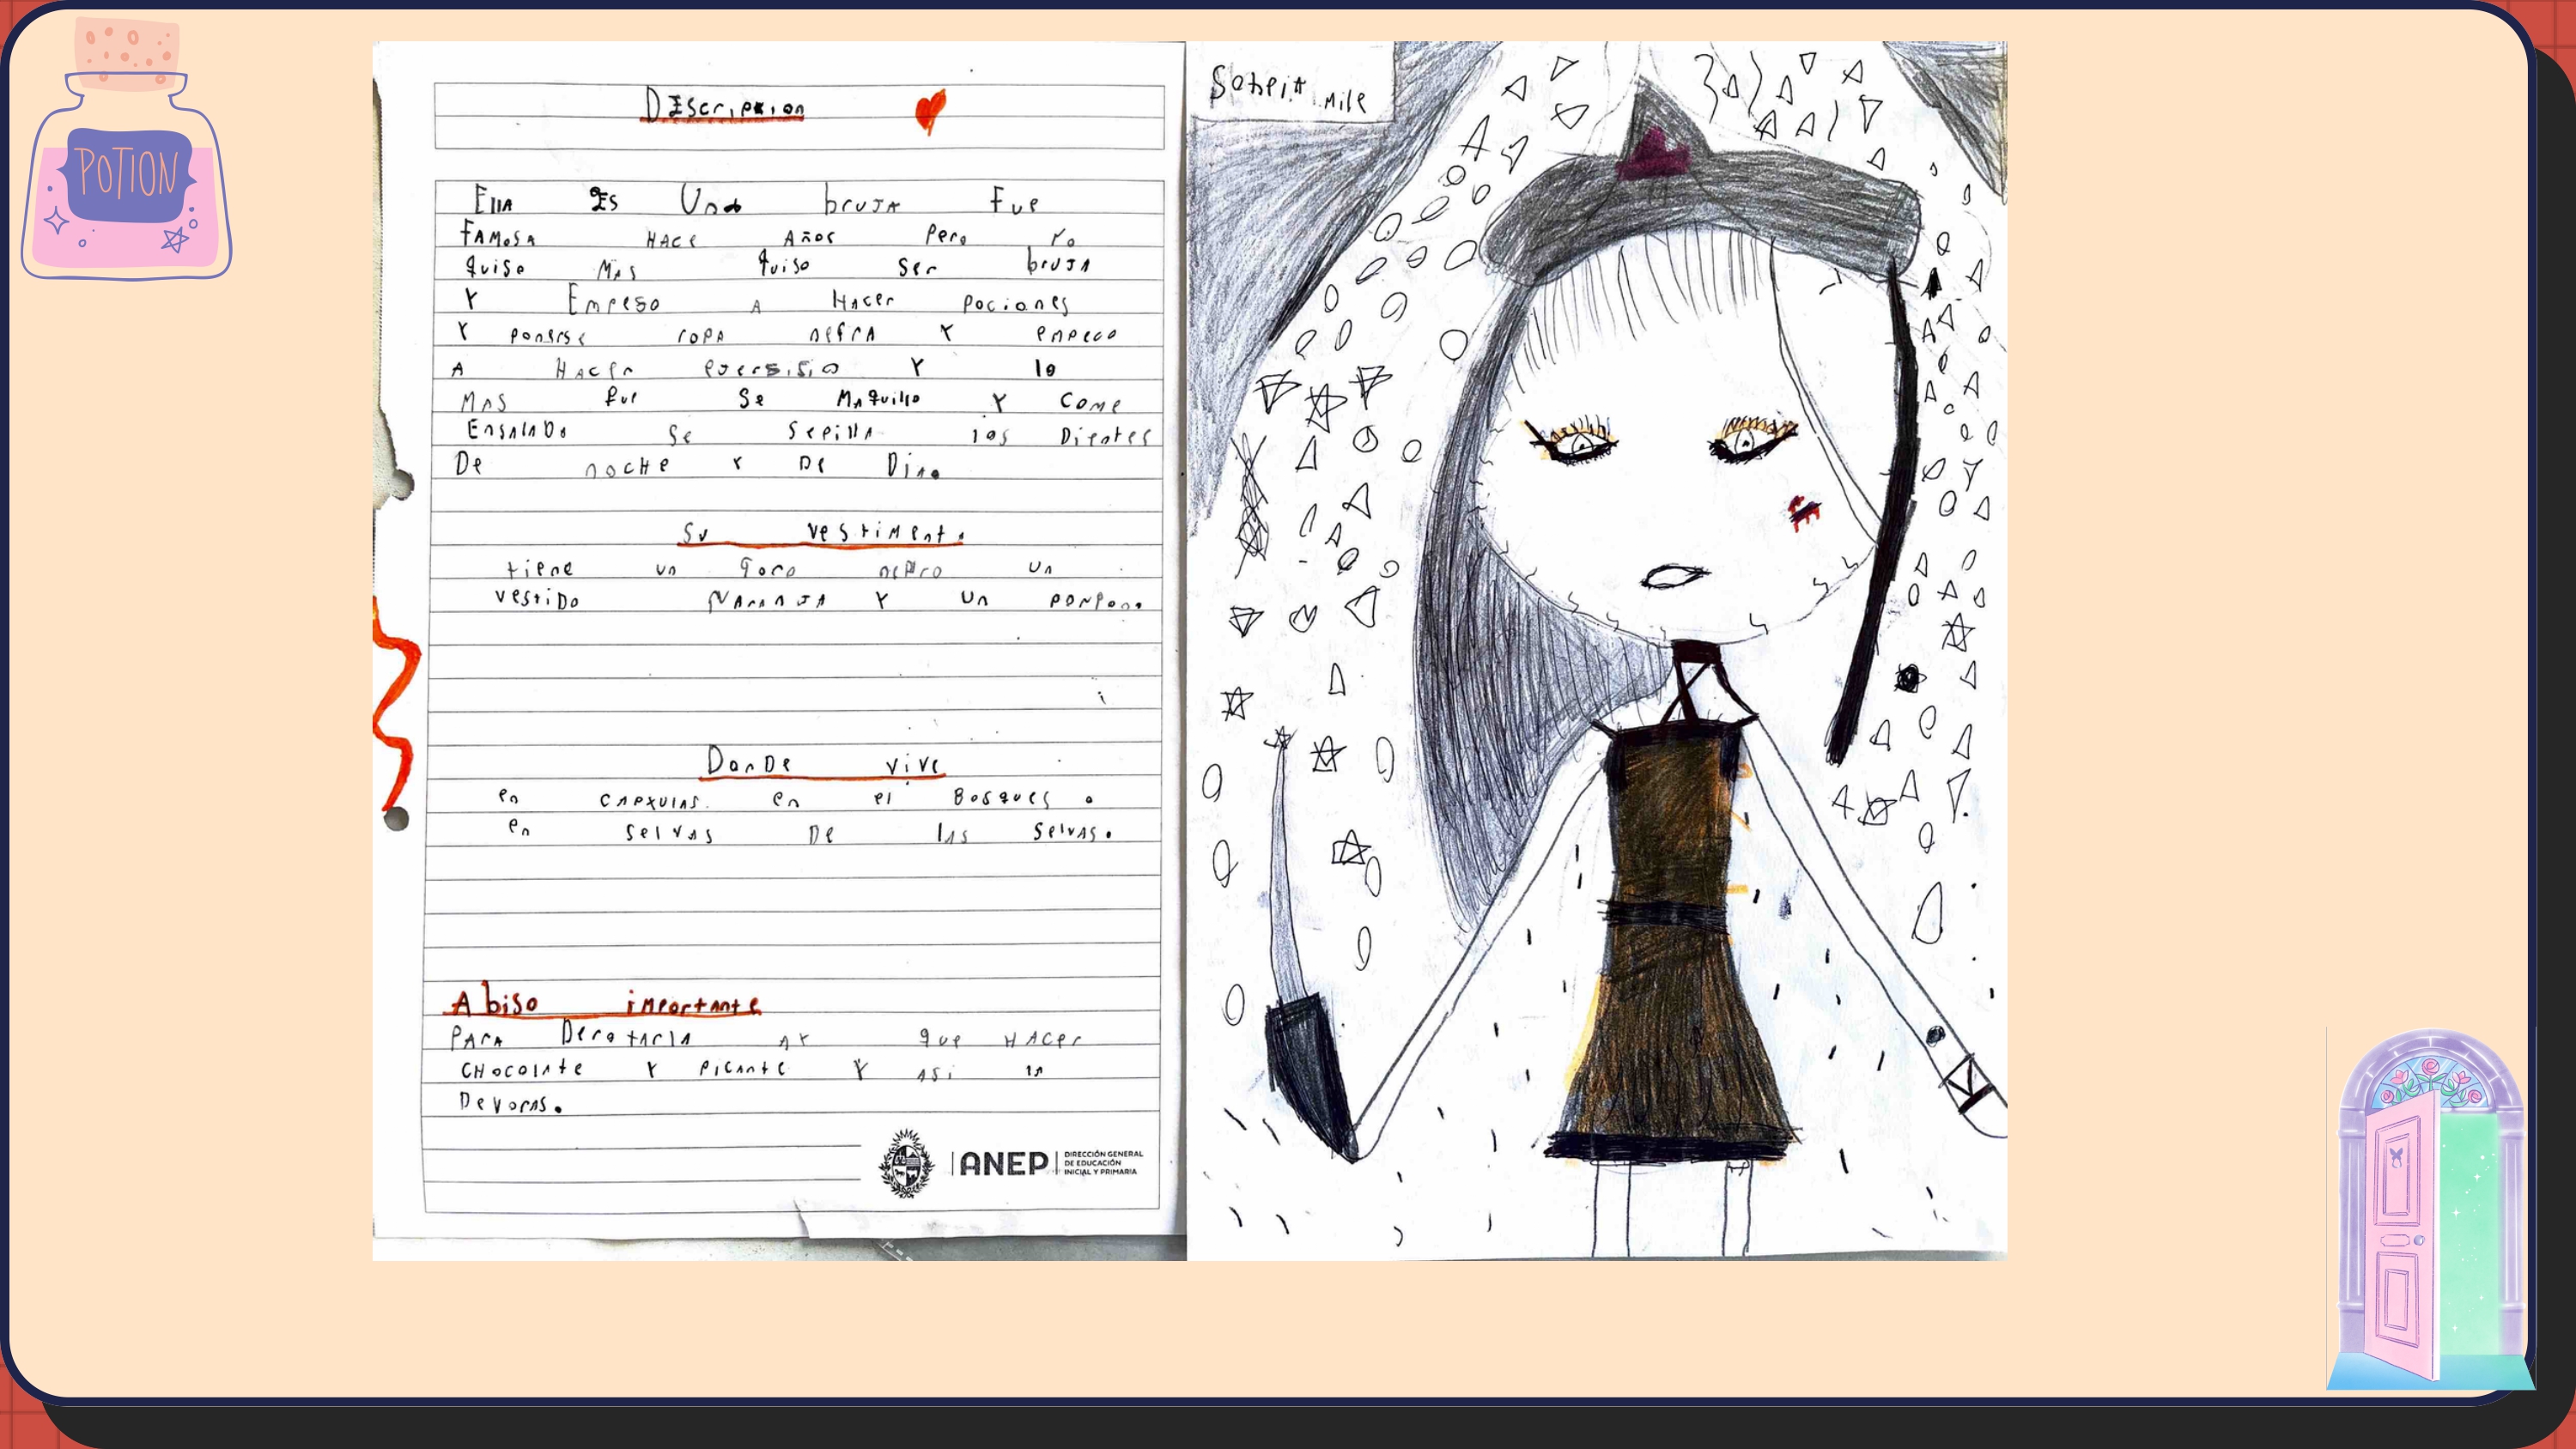 POTION
DEscripxion
Ella Es Una bruja Fue
FAMosA HACe Años Pero No
quiso MAs quiso ser bruJA
Y Empeso A HAcer Pociones
Y ponerse ropA negrA Y empeco
A HAcer egersisio Y lo
MAs que se MAquillo Y COMe
EnsAlADa Se SepillA los Dientes
De nocHe Y De DiA.
Su vestimenta
tiene un goro negro un
vestiDo NAranJA Y un ponpon.
DonDe vive
en CAPXulAs. en el BosqueS.
en SelvAs De lAs SelvAs.
Abiso importante
PArA DerotArlA AY que HAcer
CHocolAte Y PicAnte Y ASi lA
DeVorAs.
ANEP
DIRECCIÓN GENERAL
DE EDUCACIÓN
INICIAL Y PRIMARIA
Mile